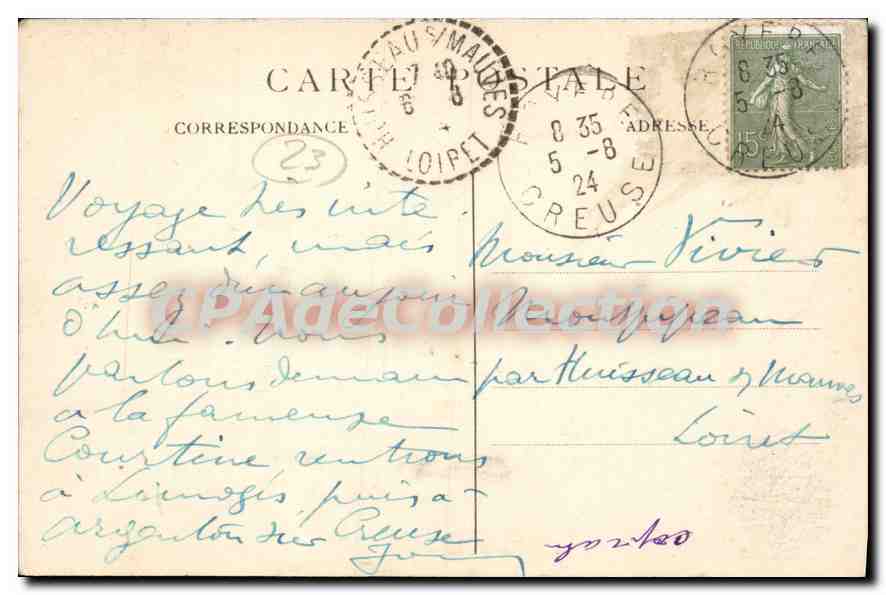 CARTE POSTALE
CORRESPONDANCE
ADRESSE
23
HUISSEAU S/MAUVES
7 40
6 8
LOIRET
8 35
5 -8
24
CREUSE
REPUBLIQUE FRANÇAISE
15c
8 35
5 -8
24
CREUSE
Voyage très inté
ressant, mais
assez dur aujour
d'hui. Nous
partons demain
a la fameuse
Courtine, rentrons
à Limoges puis a
argenton sur Creuse
Monsieur Vivier
Montpipeau
par Huisseau s/ Mauves
Loiret
CPAdeCollection